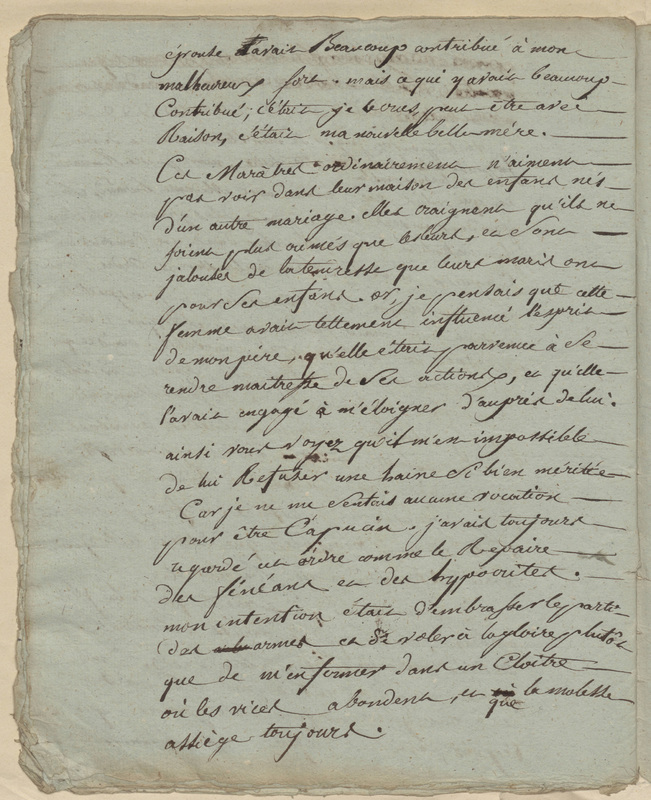 épouse avait Beaucoup contribué à mon
malheureux sort. mais ce qui y avait beaucoup
Contribué, c'était, je le crus, peut être avec
Raison, c'était ma nouvelle belle mère.
Ces Marâtres ordinairement n'aiment
pas voir dans leur maison des enfans nés
d'un autre mariage. elles craignent qu'ils ne
soient plus aimés que les leurs, et sont
jalouses de la tendresse que leurs maris ont
pour ses enfans. or, je pensais que cette
femme avait tellement influencé l'esprit
de mon père, qu'elle était parvenue à se
rendre maitresse de ses actions, et qu'elle
l'avait engagé à m'éloigner d'auprès de lui.
ainsi vous voyez qu'il m'en impossible
de lui Refuser une haine si bien méritée
Car je ne me sentais aucune vocation
pour être Capucin. j'avais toujours
regardé cet ordre comme le Repaire
des fénéans et des hypocrites.
mon intention était d'embrasser le parti
des armes et de voler à la gloire plutôt
que de m'enfermer dans un Cloître
où les vices abondent, et que la molesse
assiège toujours.